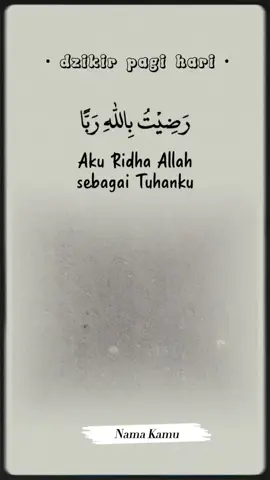 • dzikir pagi hari •
رَضِيْتُ بِاللهِ رَبًّا
Aku Ridha Allah
sebagai Tuhanku
Nama Kamu